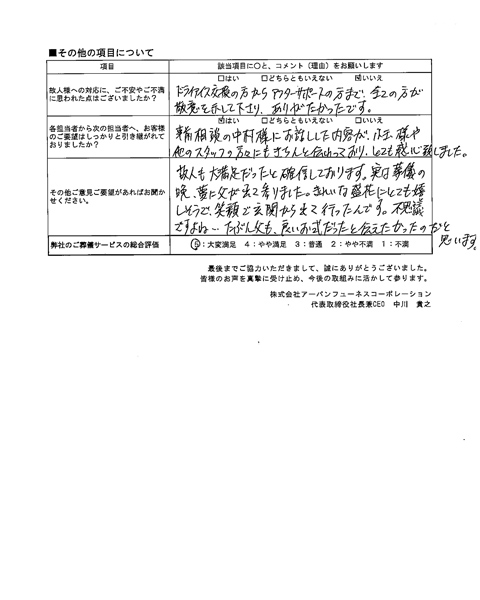 ■その他の項目について
項目 該当項目に〇と、コメント（理由）をお願いします
故人様への対応に、ご不安やご不満に思われた点はございましたか？
□はい □どちらともいえない ☑いいえ
ドライアイス交換の方からアフターサポートの方まで、全ての方が
敬意を示して下さり、ありがたかったです。
各担当者から次の担当者へ、お客様のご要望はしっかりと引き継がれておりましたか？
☑はい □どちらともいえない □いいえ
事前相談の中村様にお話しした内容が、 様や
他のスタッフの方々にもきちんと伝わっており、とても感心致しました。
その他ご意見ご要望があればお聞かせください。
故人も大満足だったと確信しております。実は葬儀の
晩、夢に父が出て参りました。きれいな盛花にとても嬉
しそうで、笑顔で玄関から出て行ったんです。不思議
ですよね…たぶん父も、良いお式だったと伝えたかったのかと
思います。
弊社のご葬儀サービスの総合評価 5：大変満足 4：やや満足 3：普通 2：やや不満 1：不満
最後までご協力いただきまして、誠にありがとうございました。
皆様のお声を真摯に受け止め、今後の取組みに活かして参ります。
株式会社アーバンフューネスコーポレーション
代表取締役社長兼CEO 中川 貴之